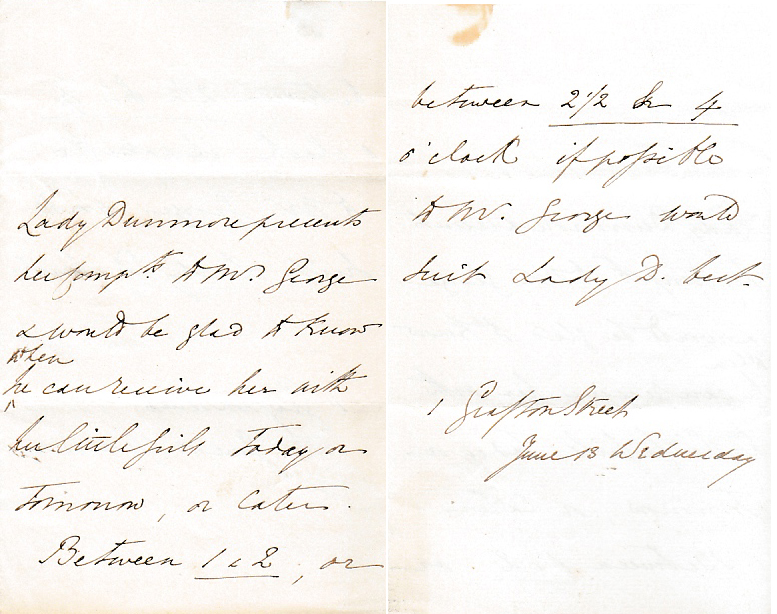 Lady Dunmore presents
her Compts to Mr. George
& would be glad to know
when
he can receive her with
her little girls Today or
Tomorrow, or later.
Between 1 & 2, or
between 2 1/2 & 4
o'clock if possible
to Mr. George would
suit Lady D. best.
1 Grafton Street
June 13 Wednesday